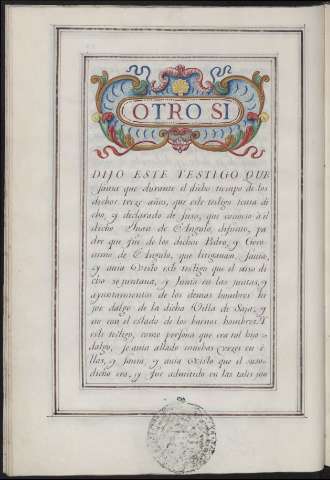 OTRO SI
DIJO ESTE TESTIGO QUE
sauia que durante el dicho tiempo de los
dichos treze años, que este testigo tenia di
cho, y declarado de suso, que conocio a el
dicho Juan de Angulo, difunto, pa
dre que fue de los dichos Pedro, y Gero
nimo de Angulo, que litigauan, sauia,
y auia visto este testigo que el suso di
cho se juntaua, y Junta en las juntas, y
ayuntamientos de los demas hombres hi
jos dalgo de la dicha Villa de y
no con el estado de los buenos hombres
este testigo, como persona que era tal hijo
dalgo, se auia allado muchas vezes en e
llas, y sauia, y auia visto que el suso
dicho era, y fue admitido en las tales jun